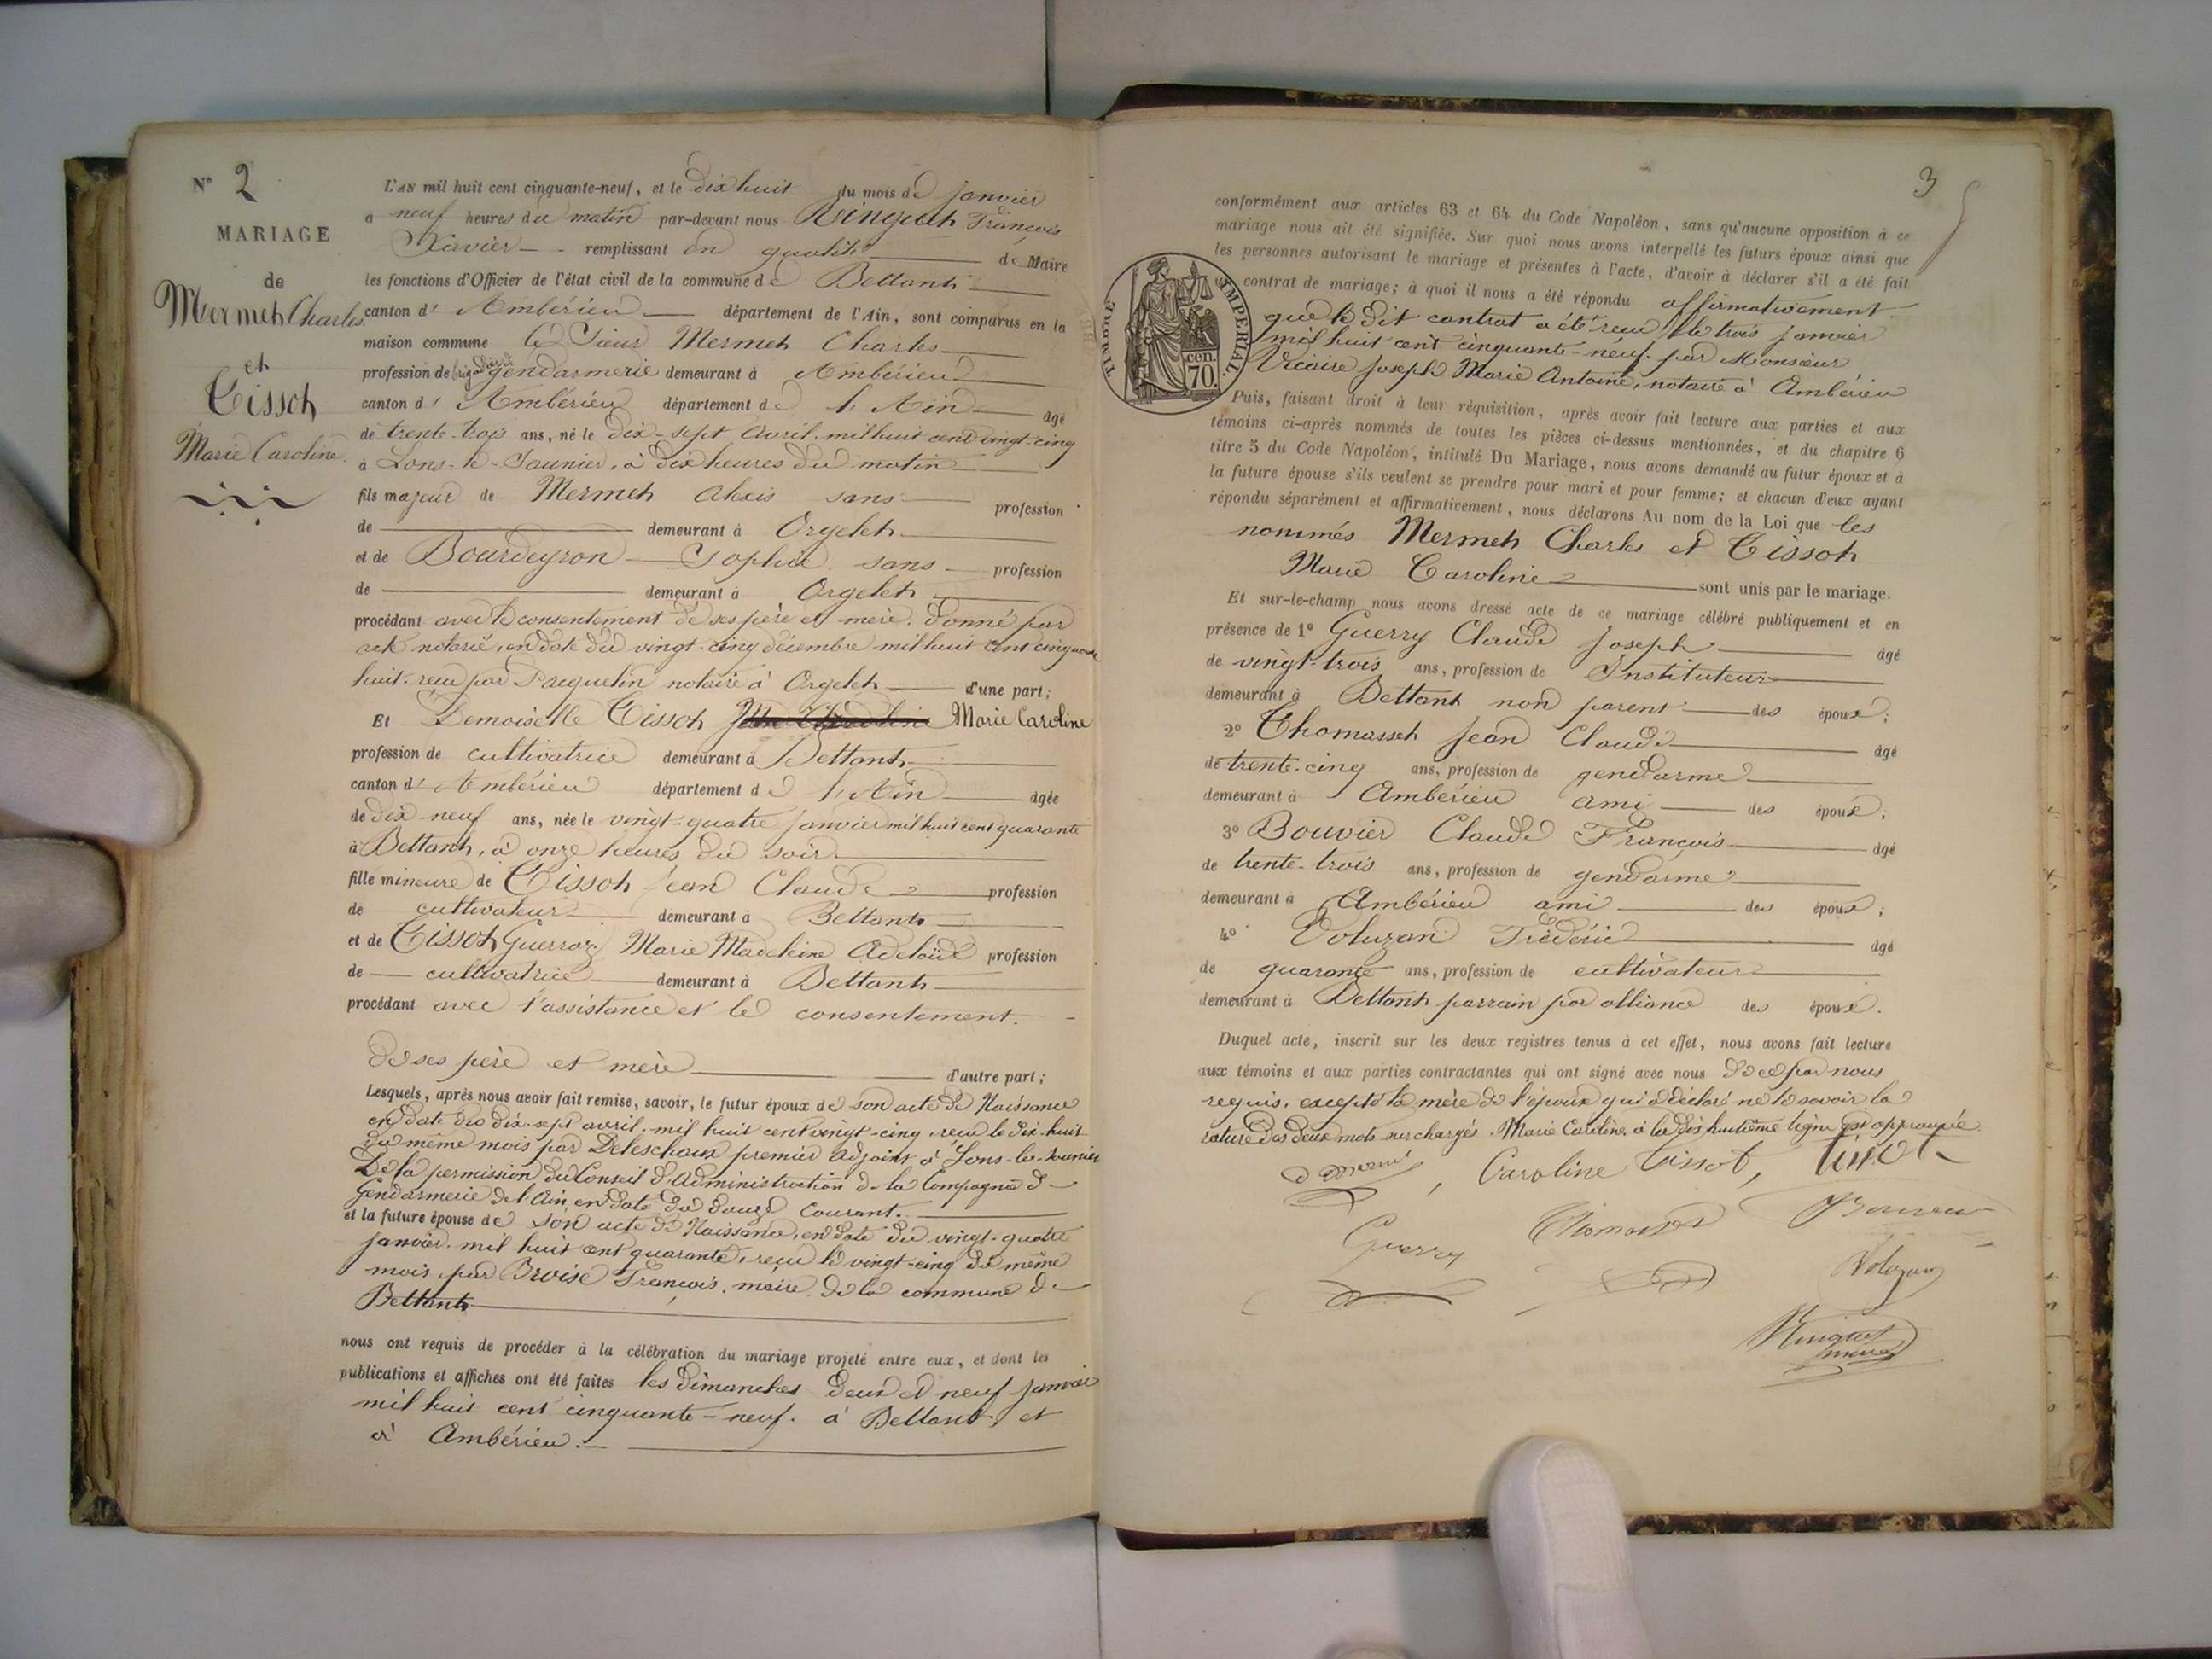 N° 2
MARIAGE
de
Mermet Charles
et
Tissot
Marie Caroline.
L'AN mil huit cent cinquante-neuf, et le dix huit du mois de janvier
à neuf heures du matin par-devant nous François
Xavier remplissant en qualité de Maire
les fonctions d'Officier de l'état civil de la commune de Bettant
canton d' Ambérieu département de l'Ain, sont comparus en la
maison commune le Sieur Mermet Charles
profession de brigadier gendarmerie demeurant à Ambérieu
canton d' Ambérieu département de l'Ain âgé
de trente-trois ans, né le dix-sept avril, mil huit cent vingt-cinq
à Lons-le-Saunier, à dix heures du matin
fils majeur de Mermet Alexis sans profession
de demeurant à Orgelet
et de Bourdeyron Sophie sans profession
de demeurant à Orgelet
procédant avec le consentement de ses père et mère, donné par
acte notarié, en date du vingt-cinq décembre mil huit cent cinquante
huit, reçu par Jacquelin notaire à Orgelet d'une part;
Et Demoiselle Tissot Marie Caroline
profession de cultivatrice demeurant à Bettant
canton d' Ambérieu département de l'Ain âgée
de dix neuf ans, née le vingt-quatre janvier mil huit cent quarante
à Bettant, à onze heures du soir
fille mineure de Tissot Jean Claude profession
de cultivateur demeurant à Bettant
et de Tissot Guerraz Marie Madeleine Adelaïde profession
de cultivatrice demeurant à Bettant
procédant avec l'assistance et le consentement.
de ses père et mère d'autre part;
Lesquels, après nous avoir fait remise, savoir, le futur époux de son acte de Naissance
en date du dix-sept avril, mil huit cent vingt-cinq, reçu le dix-huit
du même mois par Deleschaux premier adjoint à Lons-le-Saunier
De la permission du Conseil d'Administration de la Compagnie de
Gendarmerie de l'Ain, en date du douze courant.
et la future épouse de son acte de Naissance, en date du vingt-quatre
janvier, mil huit cent quarante, reçu le vingt-cinq du même
mois, par Broise François, maire de la commune de
Bettant
nous ont requis de procéder à la célébration du mariage projeté entre eux, et dont les
publications et affiches ont été faites les dimanches deux et neuf janvier
mil huit cent cinquante-neuf. à Bettant, et
à Ambérieu.
3
conformément aux articles 63 et 64 du Code Napoléon, sans qu'aucune opposition à ce
mariage nous ait été signifiée. Sur quoi nous avons interpellé les futurs époux ainsi que
les personnes autorisant le mariage et présentes à l'acte, d'avoir à déclarer s'il a été fait
contrat de mariage; à quoi il nous a été répondu affirmativement.
que le dit contrat a été reçu le trois janvier
mil huit cent cinquante-neuf. par Monsieur
Vicaire Joseph Marie Antoine, notaire à Ambérieu
TIMBRE IMPERIAL
70 cen.
Puis, faisant droit à leur réquisition, après avoir fait lecture aux parties et aux
témoins ci-après nommés de toutes les pièces ci-dessus mentionnées, et du chapitre 6
titre 5 du Code Napoléon, intitulé Du Mariage, nous avons demandé au futur époux et à
la future épouse s'ils veulent se prendre pour mari et pour femme; et chacun d'eux ayant
répondu séparément et affirmativement, nous déclarons Au nom de la Loi que les
nommés Mermet Charles et Tissot
Marie Caroline sont unis par le mariage.
Et sur-le-champ nous avons dressé acte de ce mariage célébré publiquement et en
présence de 1° Guerry Claude Joseph âgé
de vingt-trois ans, profession de Instituteur
demeurant à Bettant non parent des époux;
2° Thomasset Jean Claude âgé
de trente-cinq ans, profession de gendarme
demeurant à Ambérieu ami des époux;
3° Bouvier Claude François âgé
de trente-trois ans, profession de gendarme
demeurant à Ambérieu ami des époux;
4° Voluzan Frédéric âgé
de quarante ans, profession de cultivateur
demeurant à Bettant parrain par alliance des époux.
Duquel acte, inscrit sur les deux registres tenus à cet effet, nous avons fait lecture
aux témoins et aux parties contractantes qui ont signé avec nous de ce par nous
requis, excepté la mère de l'épouse qui a déclaré ne le savoir la
rature des deux mots surchargés. Marie Caroline à la dix huitième ligne est approuvée.
Caroline Tissot, Tissot
Guerry Thomasset Bouvier
Voluzan